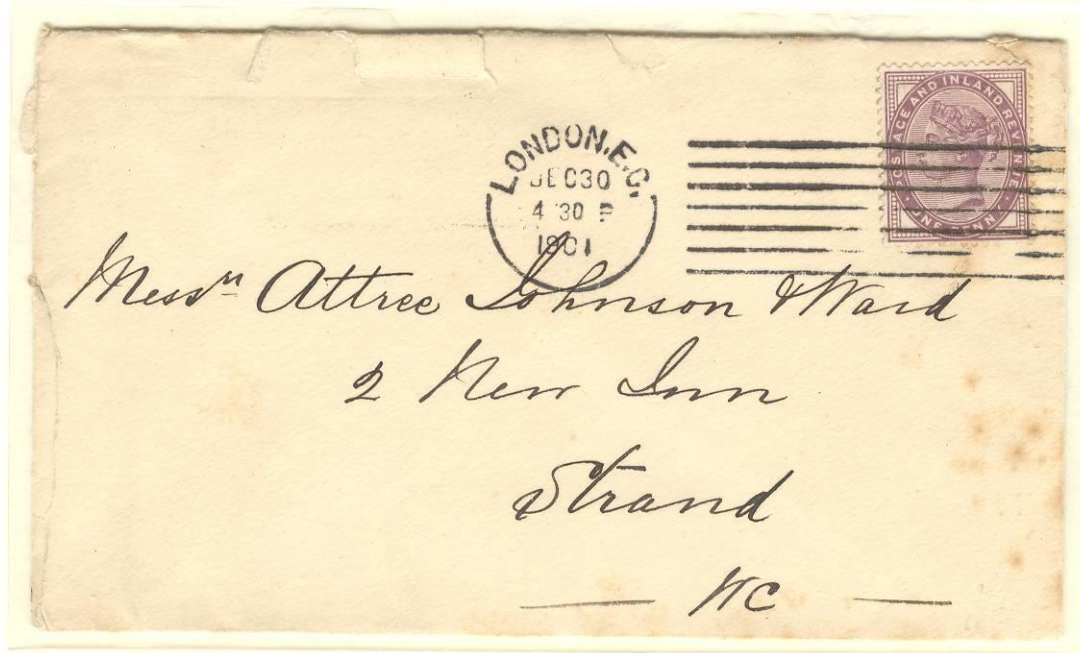 POSTAGE AND INLAND REVENUE
ONE PENNY
LONDON.E.C.
DEC30
4 30 P
1901
Messrs Attree Johnson & Ward
2 New Inn
Strand
WC